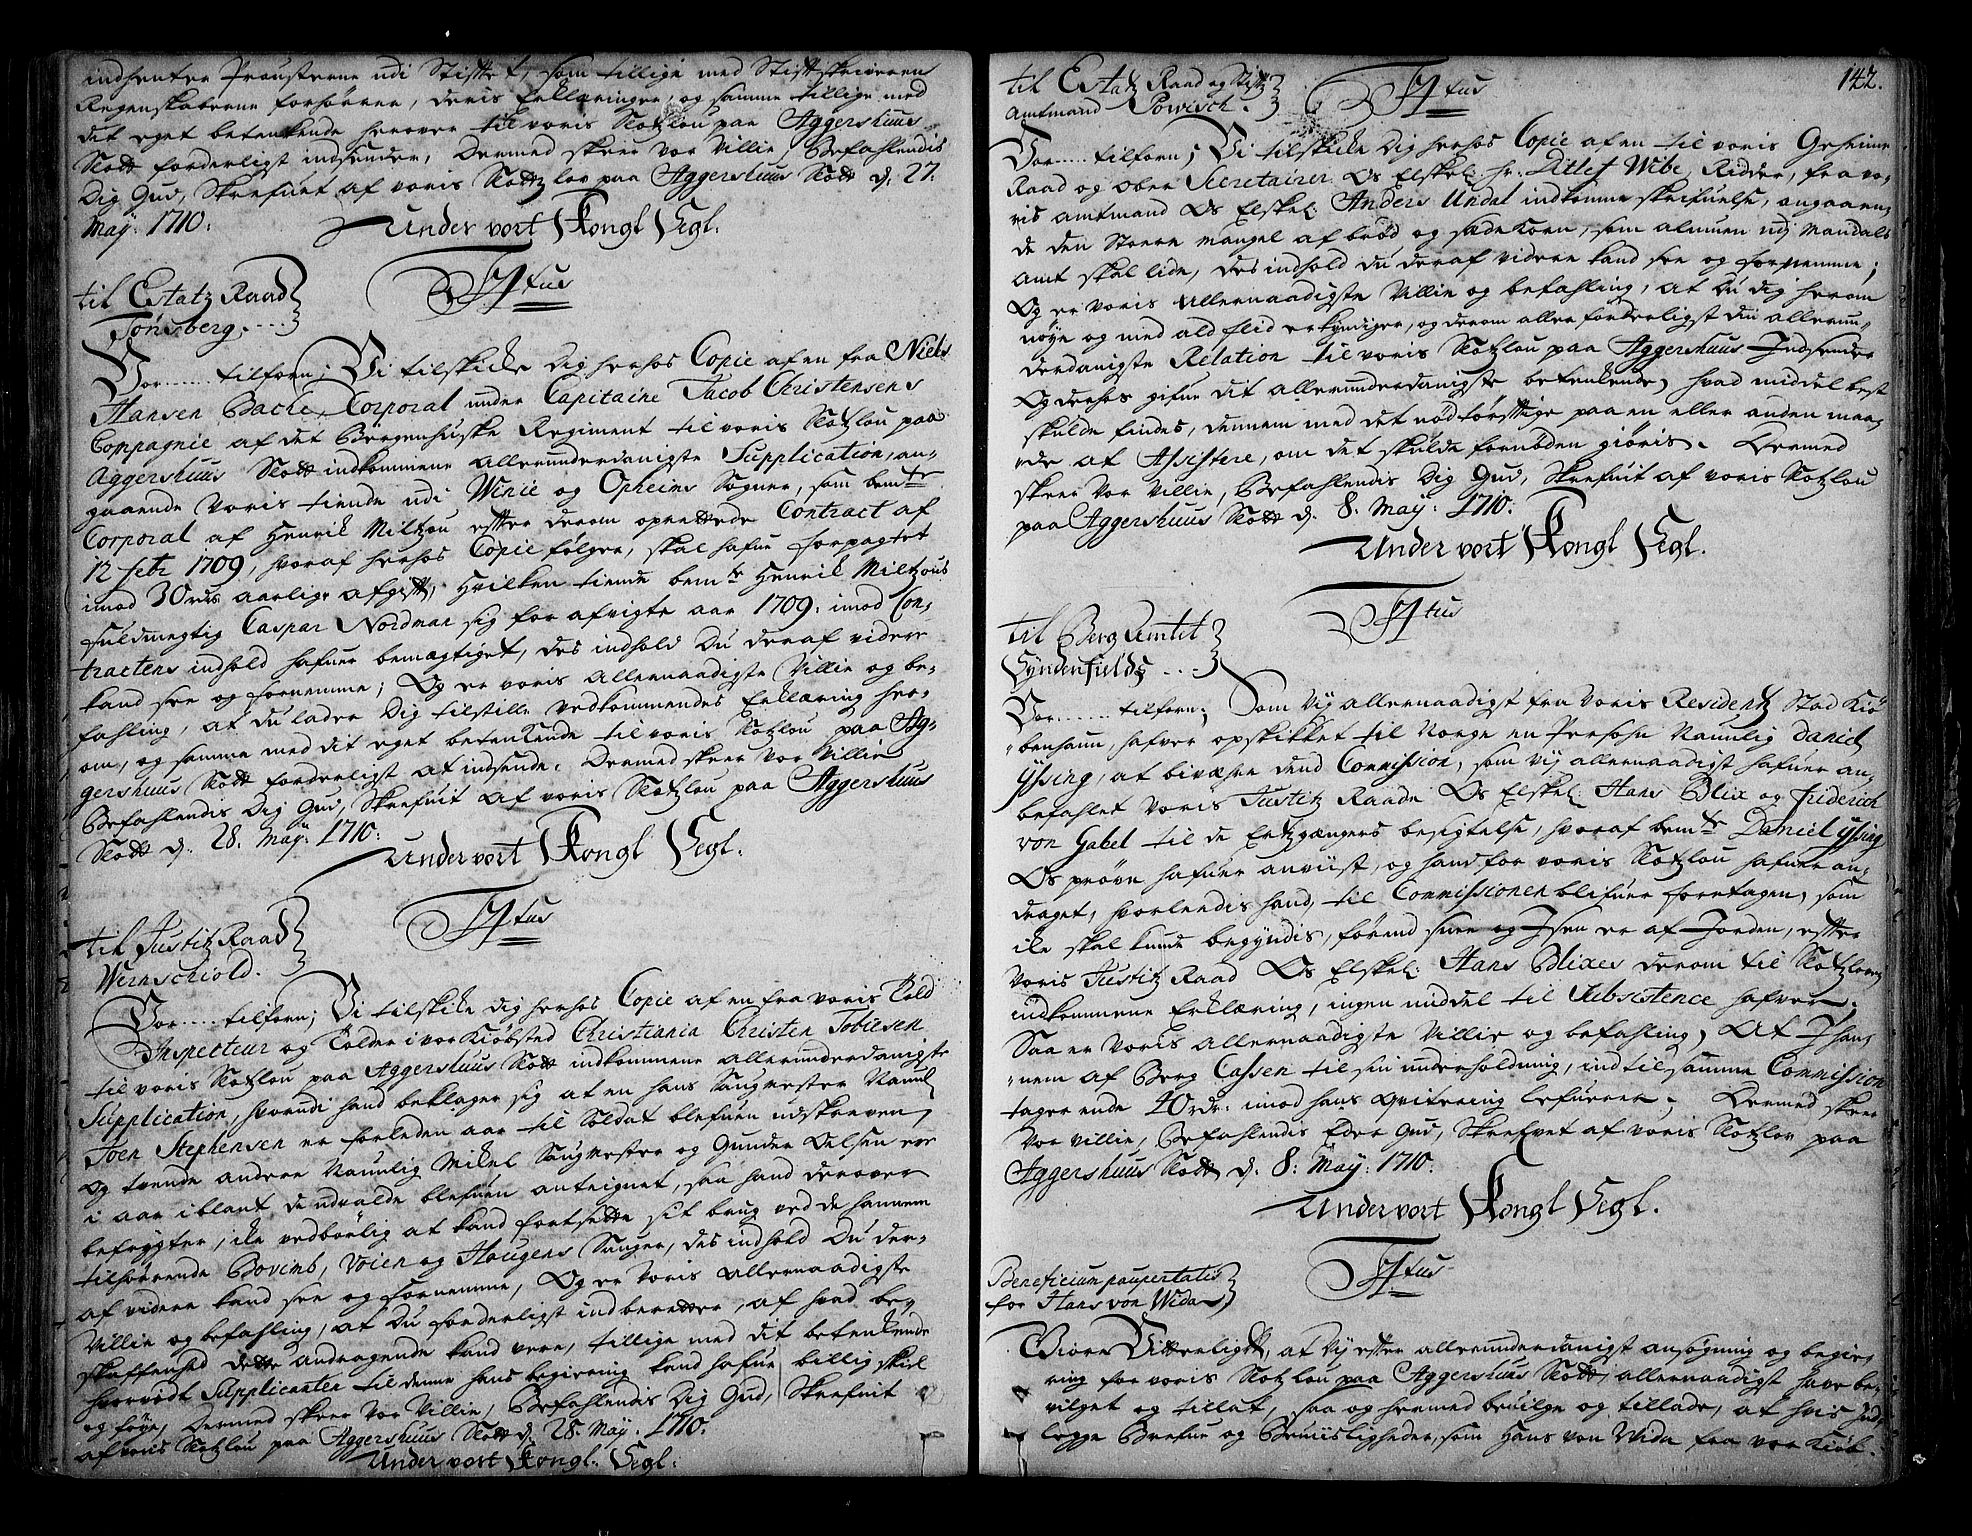 indhenter Prousterne udi Stifttet, som tillige med Stiftskrifveren
Regenskaberne forhörer, deris Erklæringer, og samme tillige med
det eget betenkende herover til voris Slotzlou paa Aggershuus
Slott forderligst indsender, Dermed skeer Vor Villie, Befahlendis
Dig Gud, Skrefuit af voris Slottzlov paa Aggershuus Slott d: 27.
Maÿ: 1710:
Under vort Kongl Segl.
Htus
til Etatz Raad
Tonsberg. ....
Vor ..... tilforn; Vi tilskiche dig herhos Copie af en fra Niels
Hansen Bache, Corporal under Capitaine Jacob Christensens
Compagnie af det Bergenhuske Regiment til voris Slotzlou paa
Aggershuus Slott indkommene allerunderdanigste Supplication, an-
gaaende Voris tiende udi Winie og Opheims Sogner, som bemte
Corporal af Henrik Miltzou effter derom oprettede Contract af
12 febr 1709, hvoraf herhos Copie fölger, skal hafue forpagtet
imod 30 rdr aarlige afgifft, Hvilken tiende bemte Henrik Miltzous
fuldmegtig Caspar Nordman sig for afvigte aar 1709: imod Con-
tractens indhold hafuer bemægtiget, des indhold Du deraf videre
kand see og fornemme; Og er voris allernaadigste Villie og be-
fahling, at du lader Dig tilstille vedkommendes Erklæring her-
om, og samme med dit eget betenkende til voris Slotzlou paa Ag-
gershuus Slott forderligst at indsende. Dermed skeer Vor Villie
Befahlendis Dig Gud, Skrefuit af voris Slotzlou paa Aggershuus
Slott d. 28. Maÿ: 1710:
Under vort Kongl Segl.
Htus
til Justitz Raad
Wernschiold.
Vor .... tilforn; Vi tilskiche dig herhos Copie af en fra voris Told
Inspecteur og Tolder i vor Kiöbsted Christiania Christen Tobiesen
til voris Slotzlou paa Aggershuus Slott indkommene allerunderdanigste
Supplication, hvorudi hand beklager sig at en hans Saugmester Naunl
Joen Stephensen er forleden aar til Soldat blefuen udskreven,
Og tvende andere Naunlig Mikel Saugmester og Gunder Oelsen er
i aar iblant de udvalde blefuen anteignet, saa hand derover
befrygter, iche vedbörlig at kand fortsette sit brug ved de hannem
tilhörende Bovims, Voien og Haugens Sauger, des indhold Du der-
af videre kand see og fornemme, Og er Voris allernaadigste
Villie og befahling, at Du forderligst indberetter, af hvad be-
skaffenhed dette andragende kand vere, tillige med dit betenkende
hvorvidt Supplicanten til denne hans begiering kand hafue billig skiel
og föye, Dermed skeer Vor Villie, Befahlendis Dig Gud, Skrefuit
af voris Slotzlou paa Aggershuus Slott d. 28. Maÿ. 1710.
Under vort Kongl. Segl.
142.
til Estatz Raad og Stift
Amtmand Powisch.
Htus
Vor .... tilforn; Vi tilskiche Dig herhos Copie af en til voris Geheime
Raad og Ober Secretairer Os Elskel: Hr. Ditlef Wibe, Ridder, fra vo-
ris amtmand Os Elskel: Anders Undal indkomme skrifuelse, angaaen-
de den Stoere Mangel af bröd og sædekorn, som almuen udj Mandals
Amt skal lide, des indhold du deraf videre kand see og fornemme;
Og er voris allernaadigste Villie og befahling, at Du dig herom
nöye og med ald flid erkyndiger, og derom aller forderligst din allerun-
derdanigste Relation til voris Slotzlou paa Aggershuus Indsender
Og derhos gifue dit allerunderdanigste betenkende, hvad middel best
skulde findes, dennem med det nödtörfftige paa en eller anden maa-
de at Assistere, om det skulde fornöden giöris. Dermed
skeer Vor Villie, Befahlendis Dig Gud, Skrefuit af voris Slotzlou
paa Aggershuus Slott d. 8. Maÿ: 1710.
Under vort Kongl Segl.
Htus
til Berg Amtet
Syndenfields ....
Vor .... tilforn; Som Vij allernaadigst fra Voris Residentz Stad Kiö-
benhaun, hafver opskikket til Norge en Persohn Naunlig Daniel
Yssing, at bivæhre dend Commission, som vij allernaadigst hafuer an-
befahlet Voris Justitz Raade Os Elskel: Hans Blix og Friderich
von Gabel til de Ertzgangers besigtelse, hvoraf bemte Daniel Yssing
Os pröve hafuer anviist, og hand for voris Slotzlou hafuer an-
draget, hvorlendis hand, til Commissionen blifuer foretagen, som
iche skal kunde begyndis, förend snee og Isen er af Jorden, effter
Voris Justitz Raad Os Elskel: Hans Blixes derom til Slotzloven
indkommene Erklæring, ingen middel til Subsistence hafver.
Saa er Voris allernaadigste Villie og befahling, At I han-
nem af Berg Cassen til sin underholdning, indtil samme Commission
tager ende 40 rdr: imod hans qvittering lefuerer. Dermed skeer
Vor Villie, Befahlendis Eder Gud, Skrefvet af voris Slotzlov paa
Aggershuus Slott d. 8: Maÿ: 1710.
Under vort Kongl Segl.
Htus
Beneficium paupertatis
for Hans von Wida
Giöre Vitterligt, at Vij effter allerunderdanigst ansögning og begie-
ring for voris Slotzlou paa Aggershuus Slott, allernaadigst have be-
vilget og tillat, saa og hermed bevilge og tillade, at hvis Ind-
legge Brefue og Beviisligheder, som Hans von Wida fra vor Kiöb-